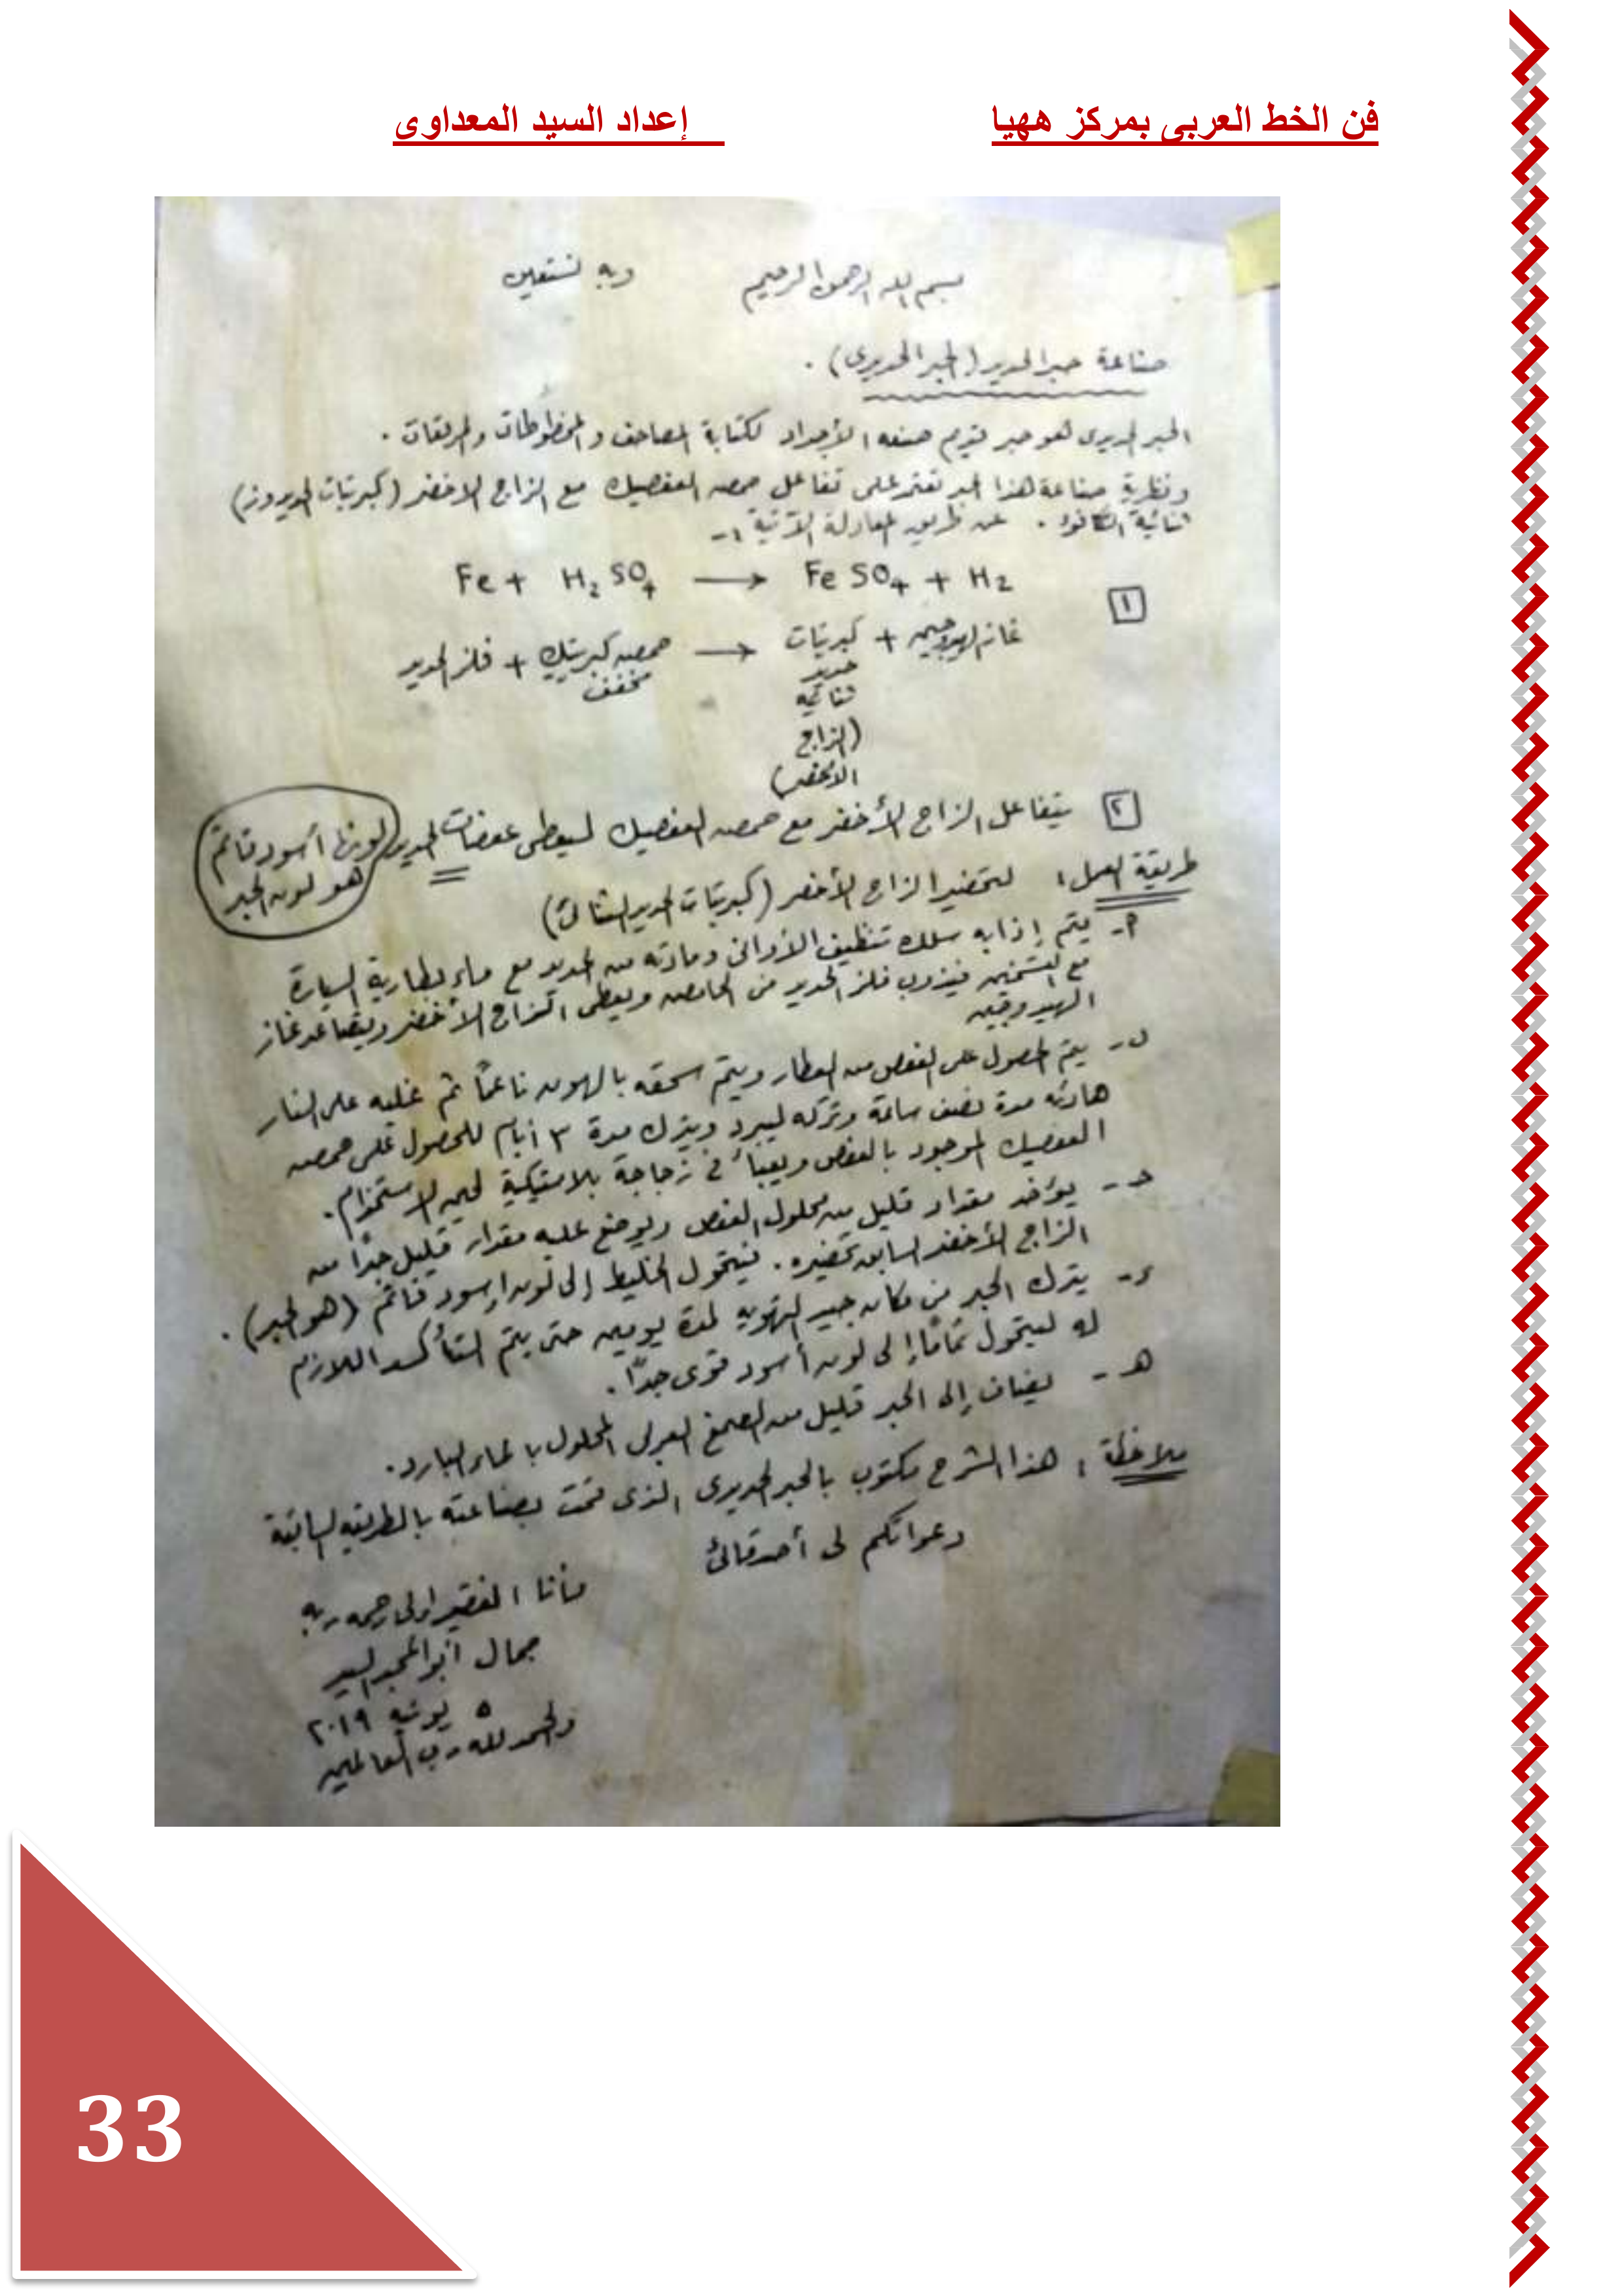 فن الخط العربى بمركز ههيا إعداد السيد المعداوى
بسم الله الرحمن الرحيم وبه نستعين
صناعة حبر الحديد (الحبر الحديدى) .
الحبر الحديدى هو حبر قديم صنعه الأجداد لكتابة المصاحف و المخطوطات والمرقعات .
ونظرية صناعة هذا الحبر تعتمد على تفاعل حمض العفصيك مع الزاج الاخضر (كبريتات الحديدوز)
ثنائية التكافؤ . عن طريق المعادلة الآتية :-
Fe + H₂SO₄ → FeSO₄ + H₂
١
فلز الحديد + حمض كبريتيك → كبريتات + غاز الهيدروجين
مخفف حديد
ثنائى
(الزاج
الاخضر)
٢ يتفاعل الزاج الأخضر مع حمض العفصيك ليعطى عفصات الحديد لونها أسود قاتم
هو لون الحبر
طريقة العمل : لتحضير الزاج الأخضر (كبريتات الحديد الثنائى)
أ- يتم إذابه سلك تنظيف الأوانى ومادته من الحديد مع ماء بطارية السيارة
مع التسخين فيذوب فلز الحديد فى الحامض ويعطى الزاج الأخضر ويتصاعد غاز
الهيدروجين
ب- يتم الحصول على العفص من العطار ويتم سحقه بالهون ناعمًا ثم غليه على النار
هادئه مدة نصف ساعة وتركه ليبرد ويترك مدة ٣ أيام للحصول على حمض
العفصيك الموجود بالعفص ويعبأ فى زجاجة بلاستيكية لحين الاستخدام .
ج- يؤخذ مقدار قليل من محلول العفص ويوضع عليه مقدار قليل جدًا من
الزاج الأخضر السابق تحضيره . فيتحول الخليط إلى لون اسود قاتم (هو الحبر) .
د- يترك الحبر فى مكان جيد التهويه لمدة يومين حتى يتم التأكسد اللازم
له ليتحول تمامًا إلى لون أسود قوى جدًا .
هـ- يضاف إلى الحبر قليل من الصمغ العربى المحلول بالماء البارد .
ملاحظة : هذا الشرح مكتوب بالحبر الحديدى الذى قمت بصناعته بالطريقه السابقة
دعواتكم لى أصدقائى
فأنا الفقير إلى رحمه ربه
جمال أبو المجد السيد
٥ يونيه ٢٠١٩
والحمد لله رب العالمين
33